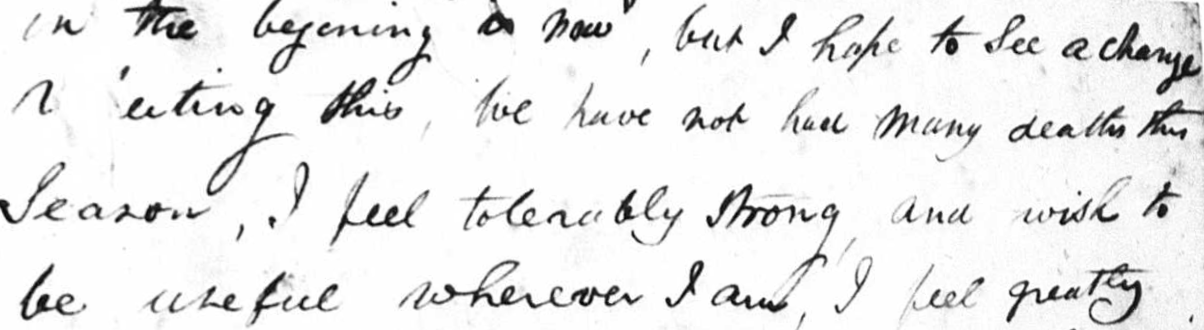 in the begening is now, but I hope to See a change
eating this, We have not had many deaths this
Season, I feel tolerably strong, and wish to
be useful wherever I am, I feel greatly